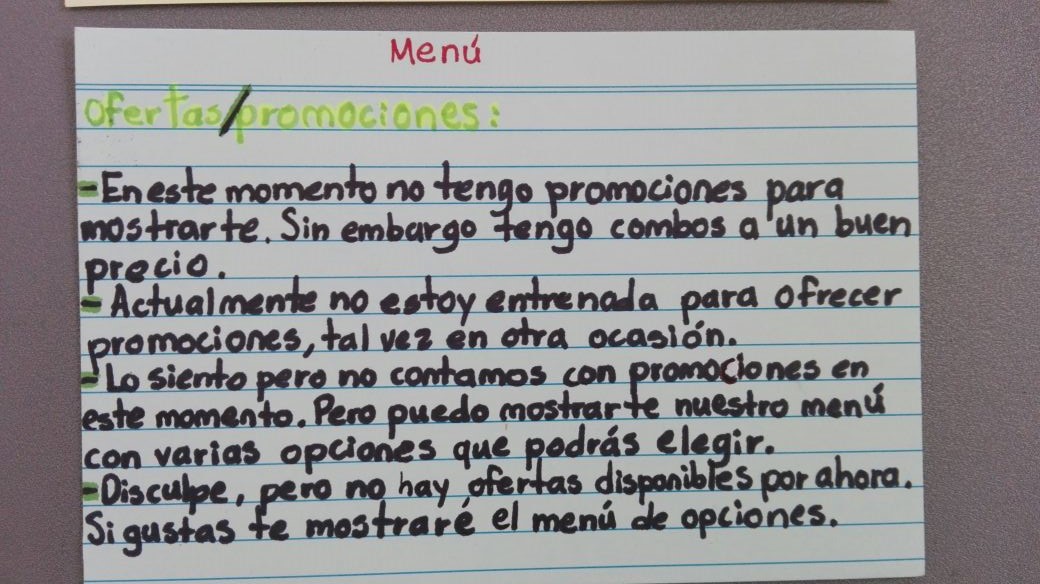 Menú
Ofertas/promociones:
- En este momento no tengo promociones para
mostrarte. Sin embargo tengo combos a un buen
precio.
- Actualmente no estoy entrenada para ofrecer
promociones, tal vez en otra ocasión.
- Lo siento pero no contamos con promociones en
este momento. Pero puedo mostrarte nuestro menú
con varias opciones que podrás elegir.
- Disculpe, pero no hay ofertas disponibles por ahora.
Si gustas te mostraré el menú de opciones.